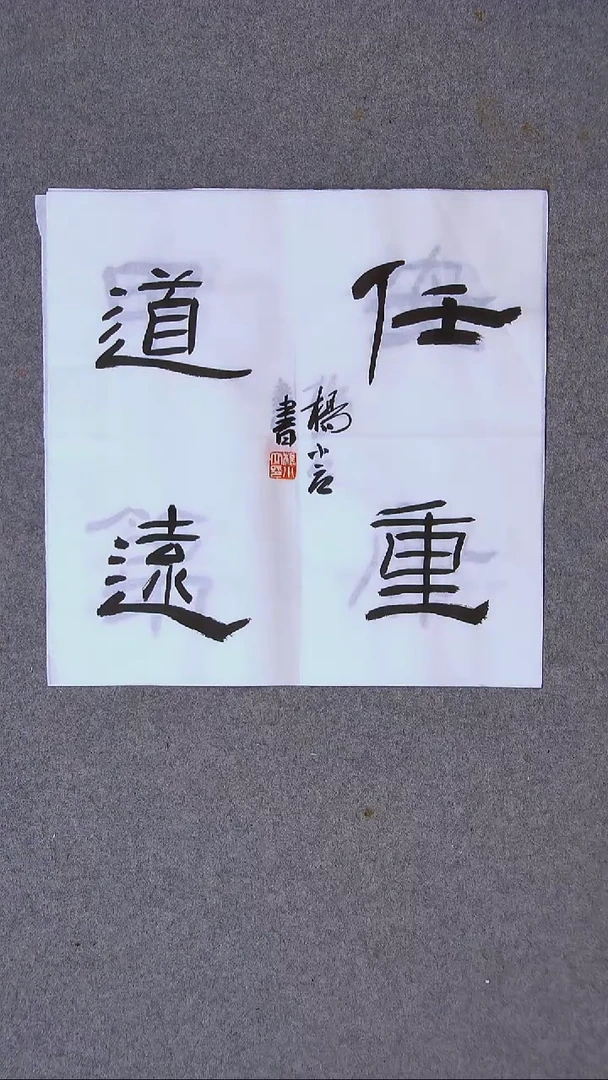 任重
道遠
楊小言
書